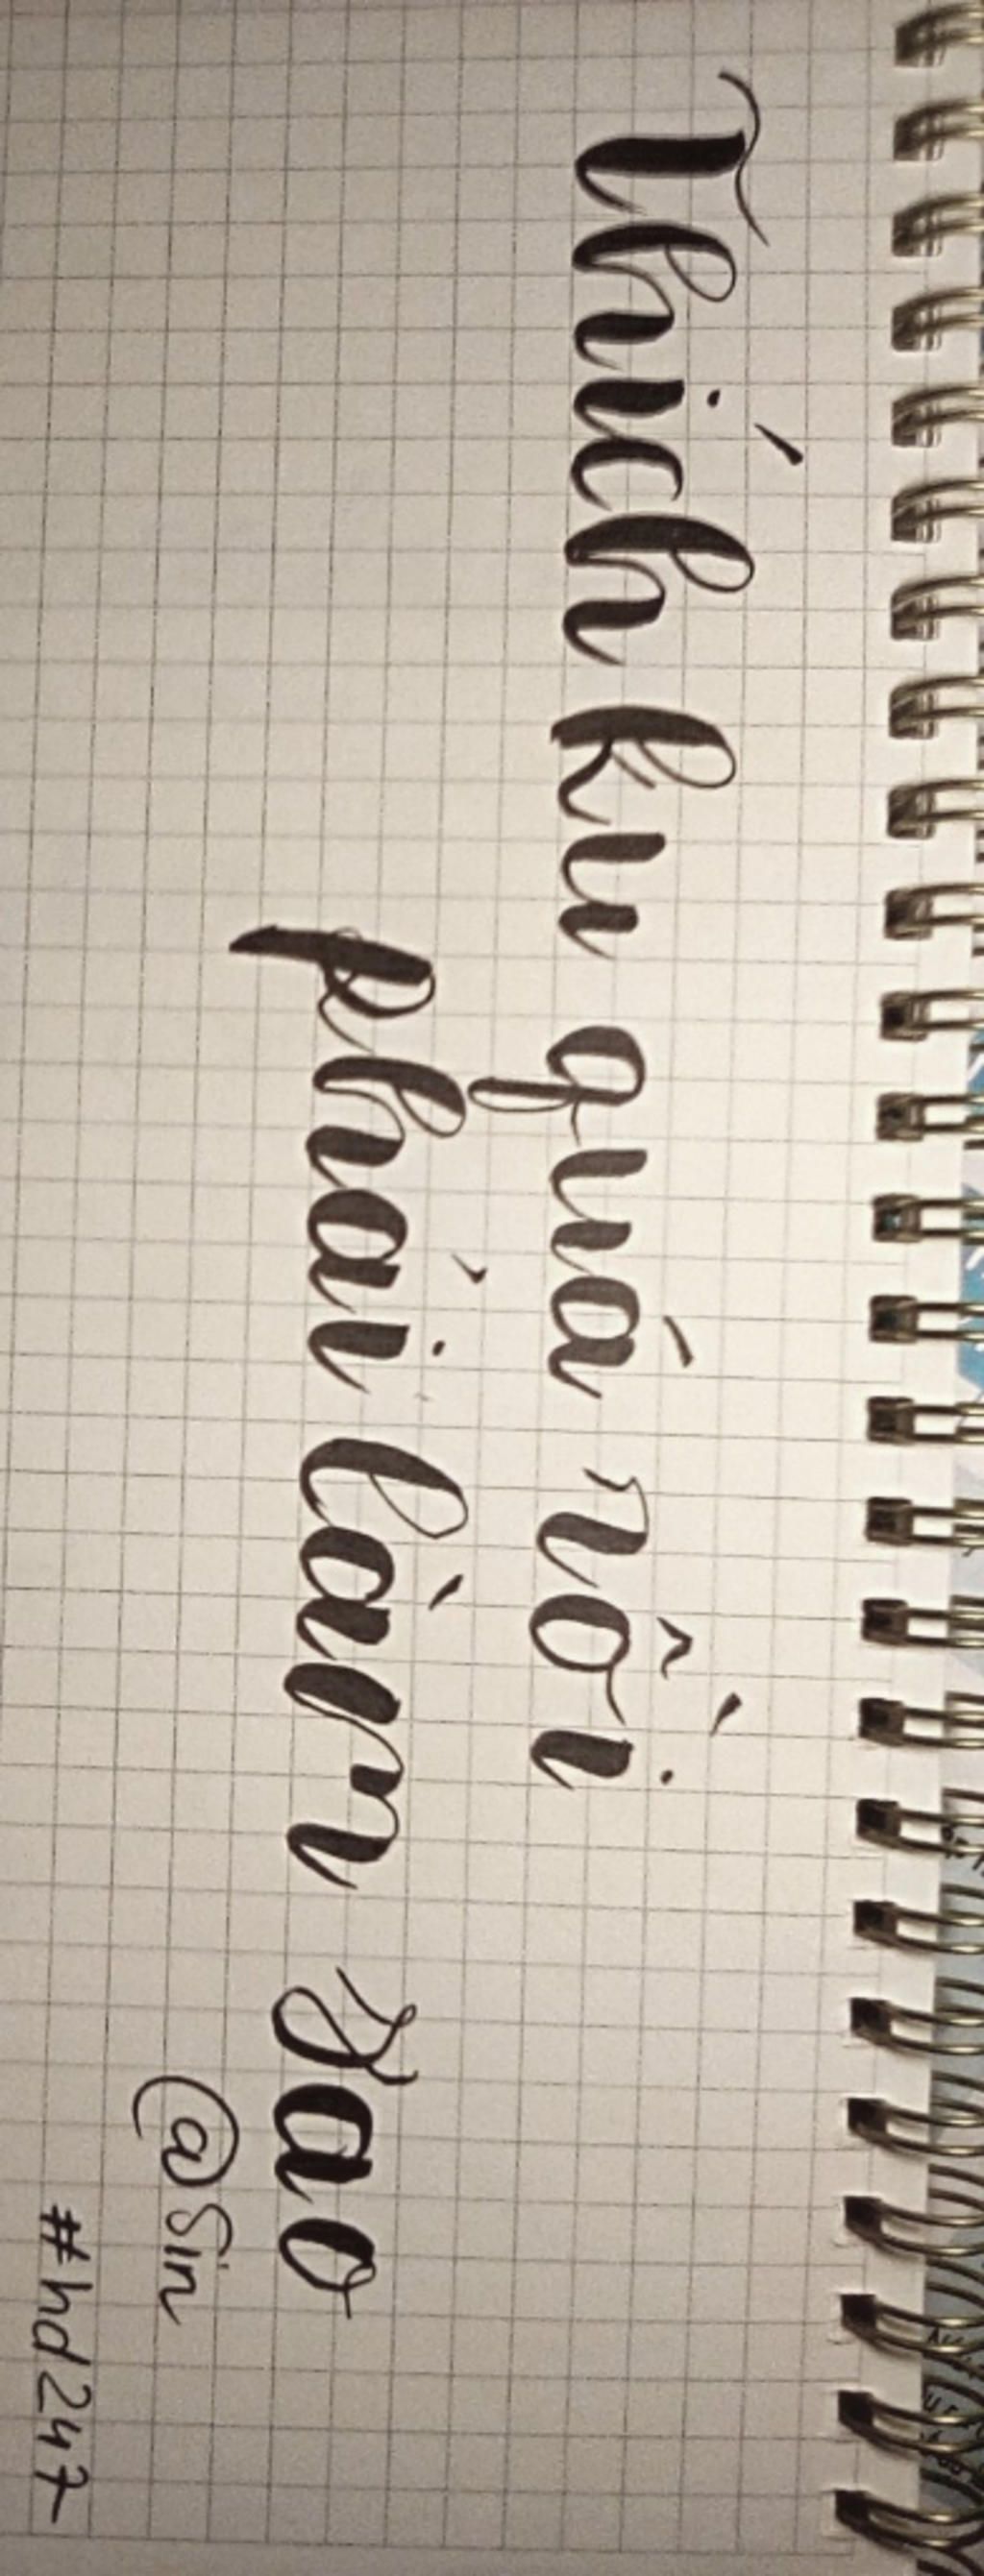 Thích ku quá rồi
phải làm sao
@Sin
#hd247